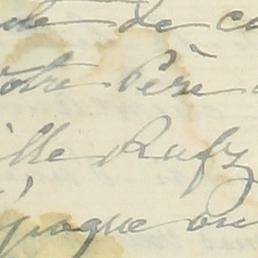 de ca
votre Père
ille Rufz
époque ou